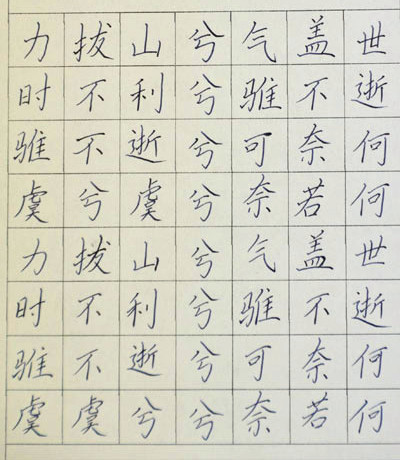 力拔山兮气盖世
时不利兮骓不逝
骓不逝兮可奈何
虞兮虞兮奈若何
力拔山兮气盖世
时不利兮骓不逝
骓不逝兮可奈何
虞虞兮兮奈若何